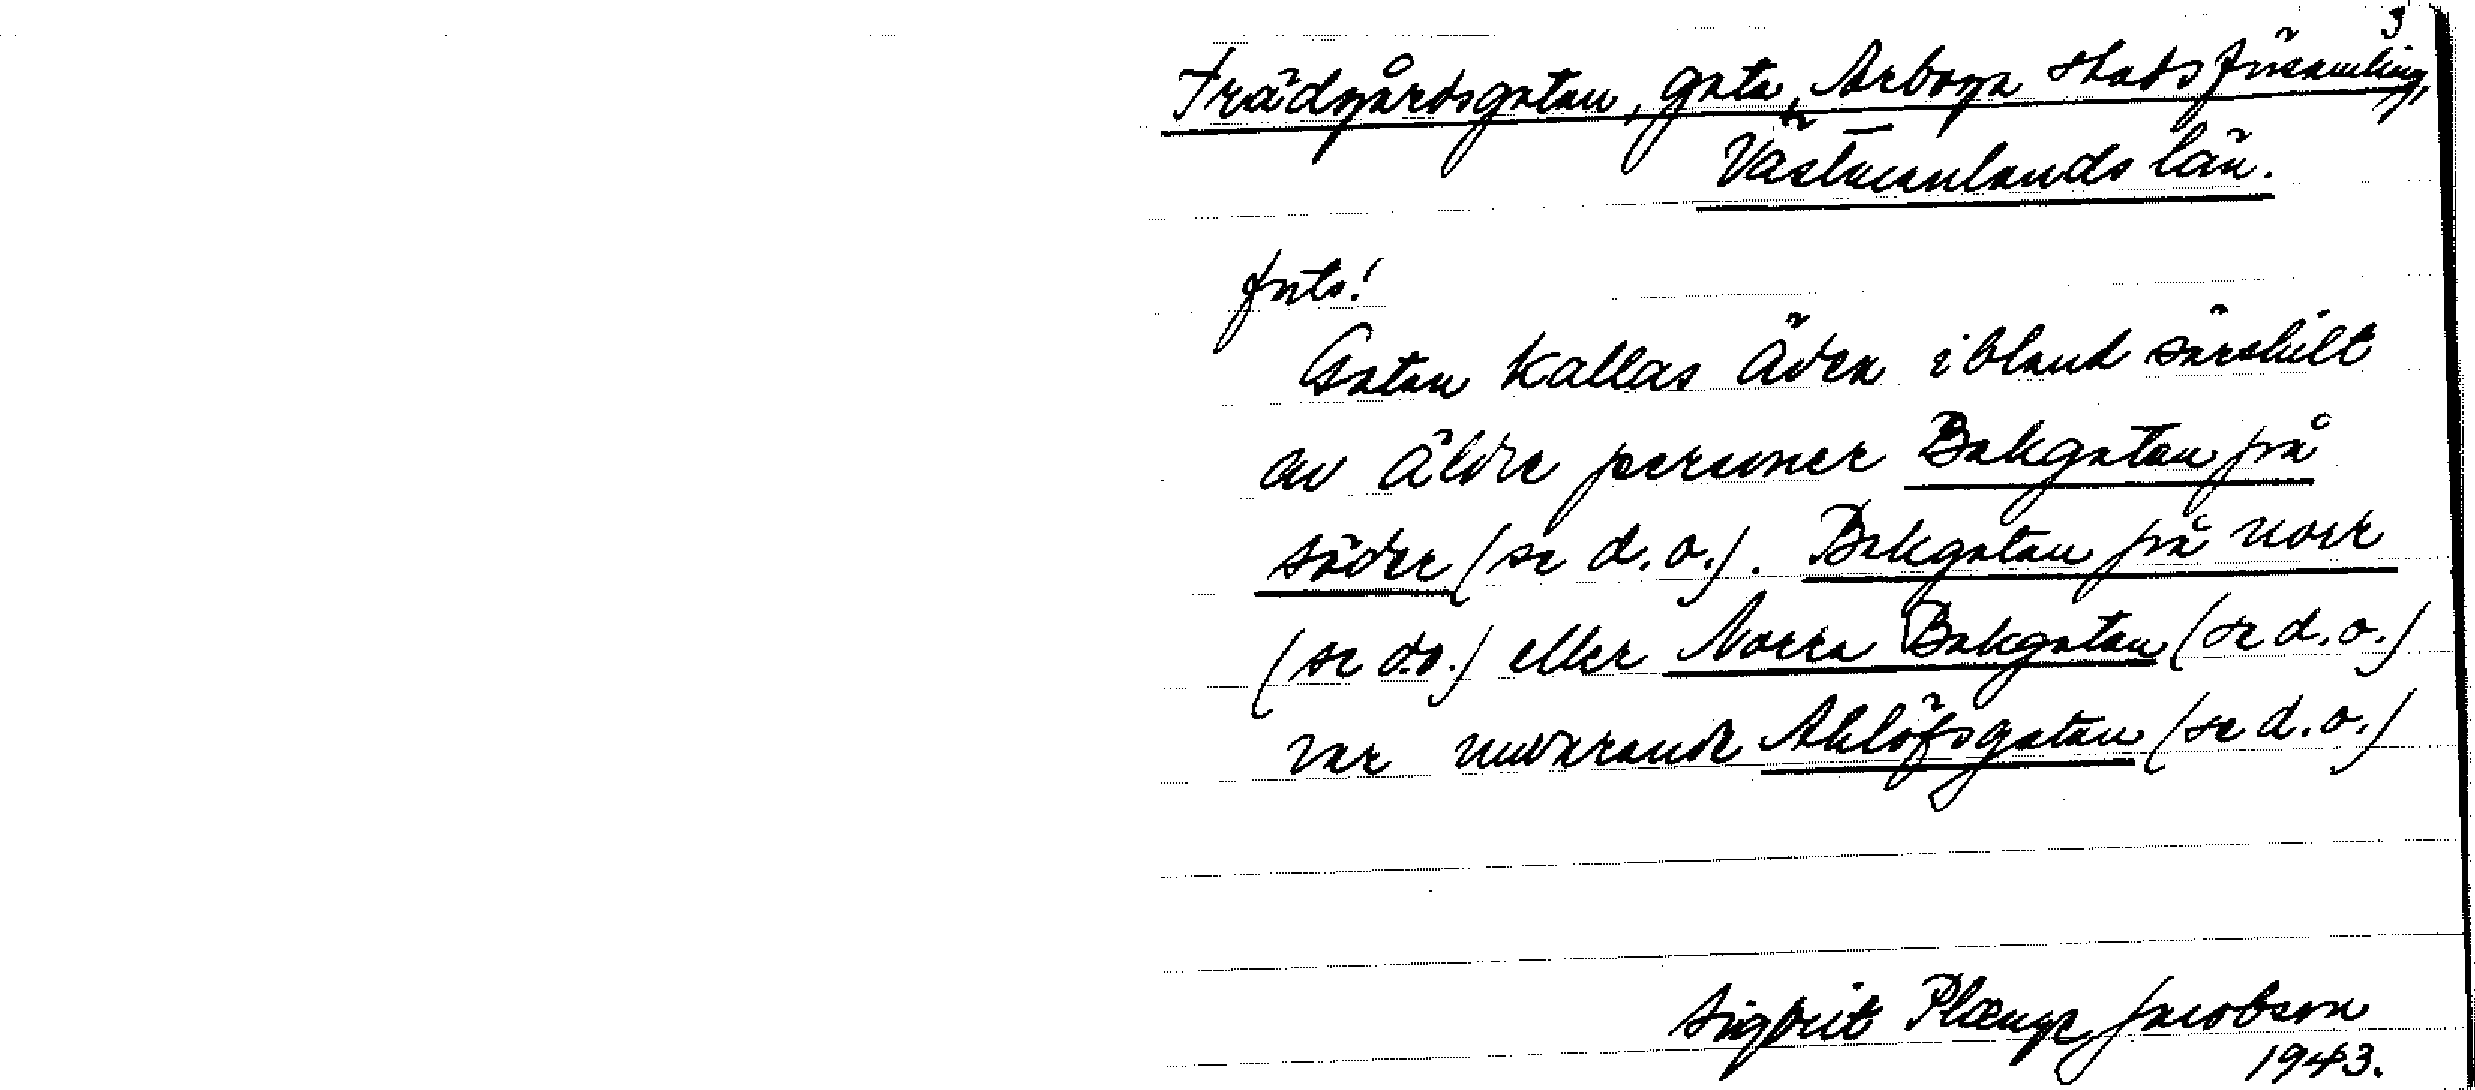 3
Trädgårdsgatan, gata, Arboga stadsförsamling,
Västmanlands län.
forts!
Gatan kallas även ibland särskilt
av äldre personer Bakgatan på
söder (se d.o.). Bakgatan på norr
(se d.o.) eller Norra Bakgatan (se d.o.)
var nuvarande Ahllöfsgatan (se d.o.)
Sigbrit Plænge Jacobson
1943.